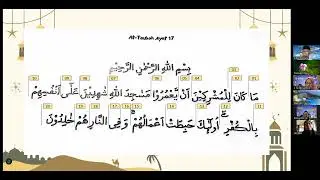 At-Taubah Ayat 17
بِسْمِ اللهِ الرَّحْمٰنِ الرَّحِيْمِ
مَا كَانَ لِلْمُشْرِكِيْنَ اَنْ يَّعْمُرُوْا مَسٰجِدَ اللهِ شٰهِدِيْنَ عَلٰٓى اَنْفُسِهِمْ
بِالْكُفْرِۗ اُولٰۤىِٕكَ حَبِطَتْ اَعْمَالُهُمْۚ وَفِى النَّارِ هُمْ خٰلِدُوْنَ